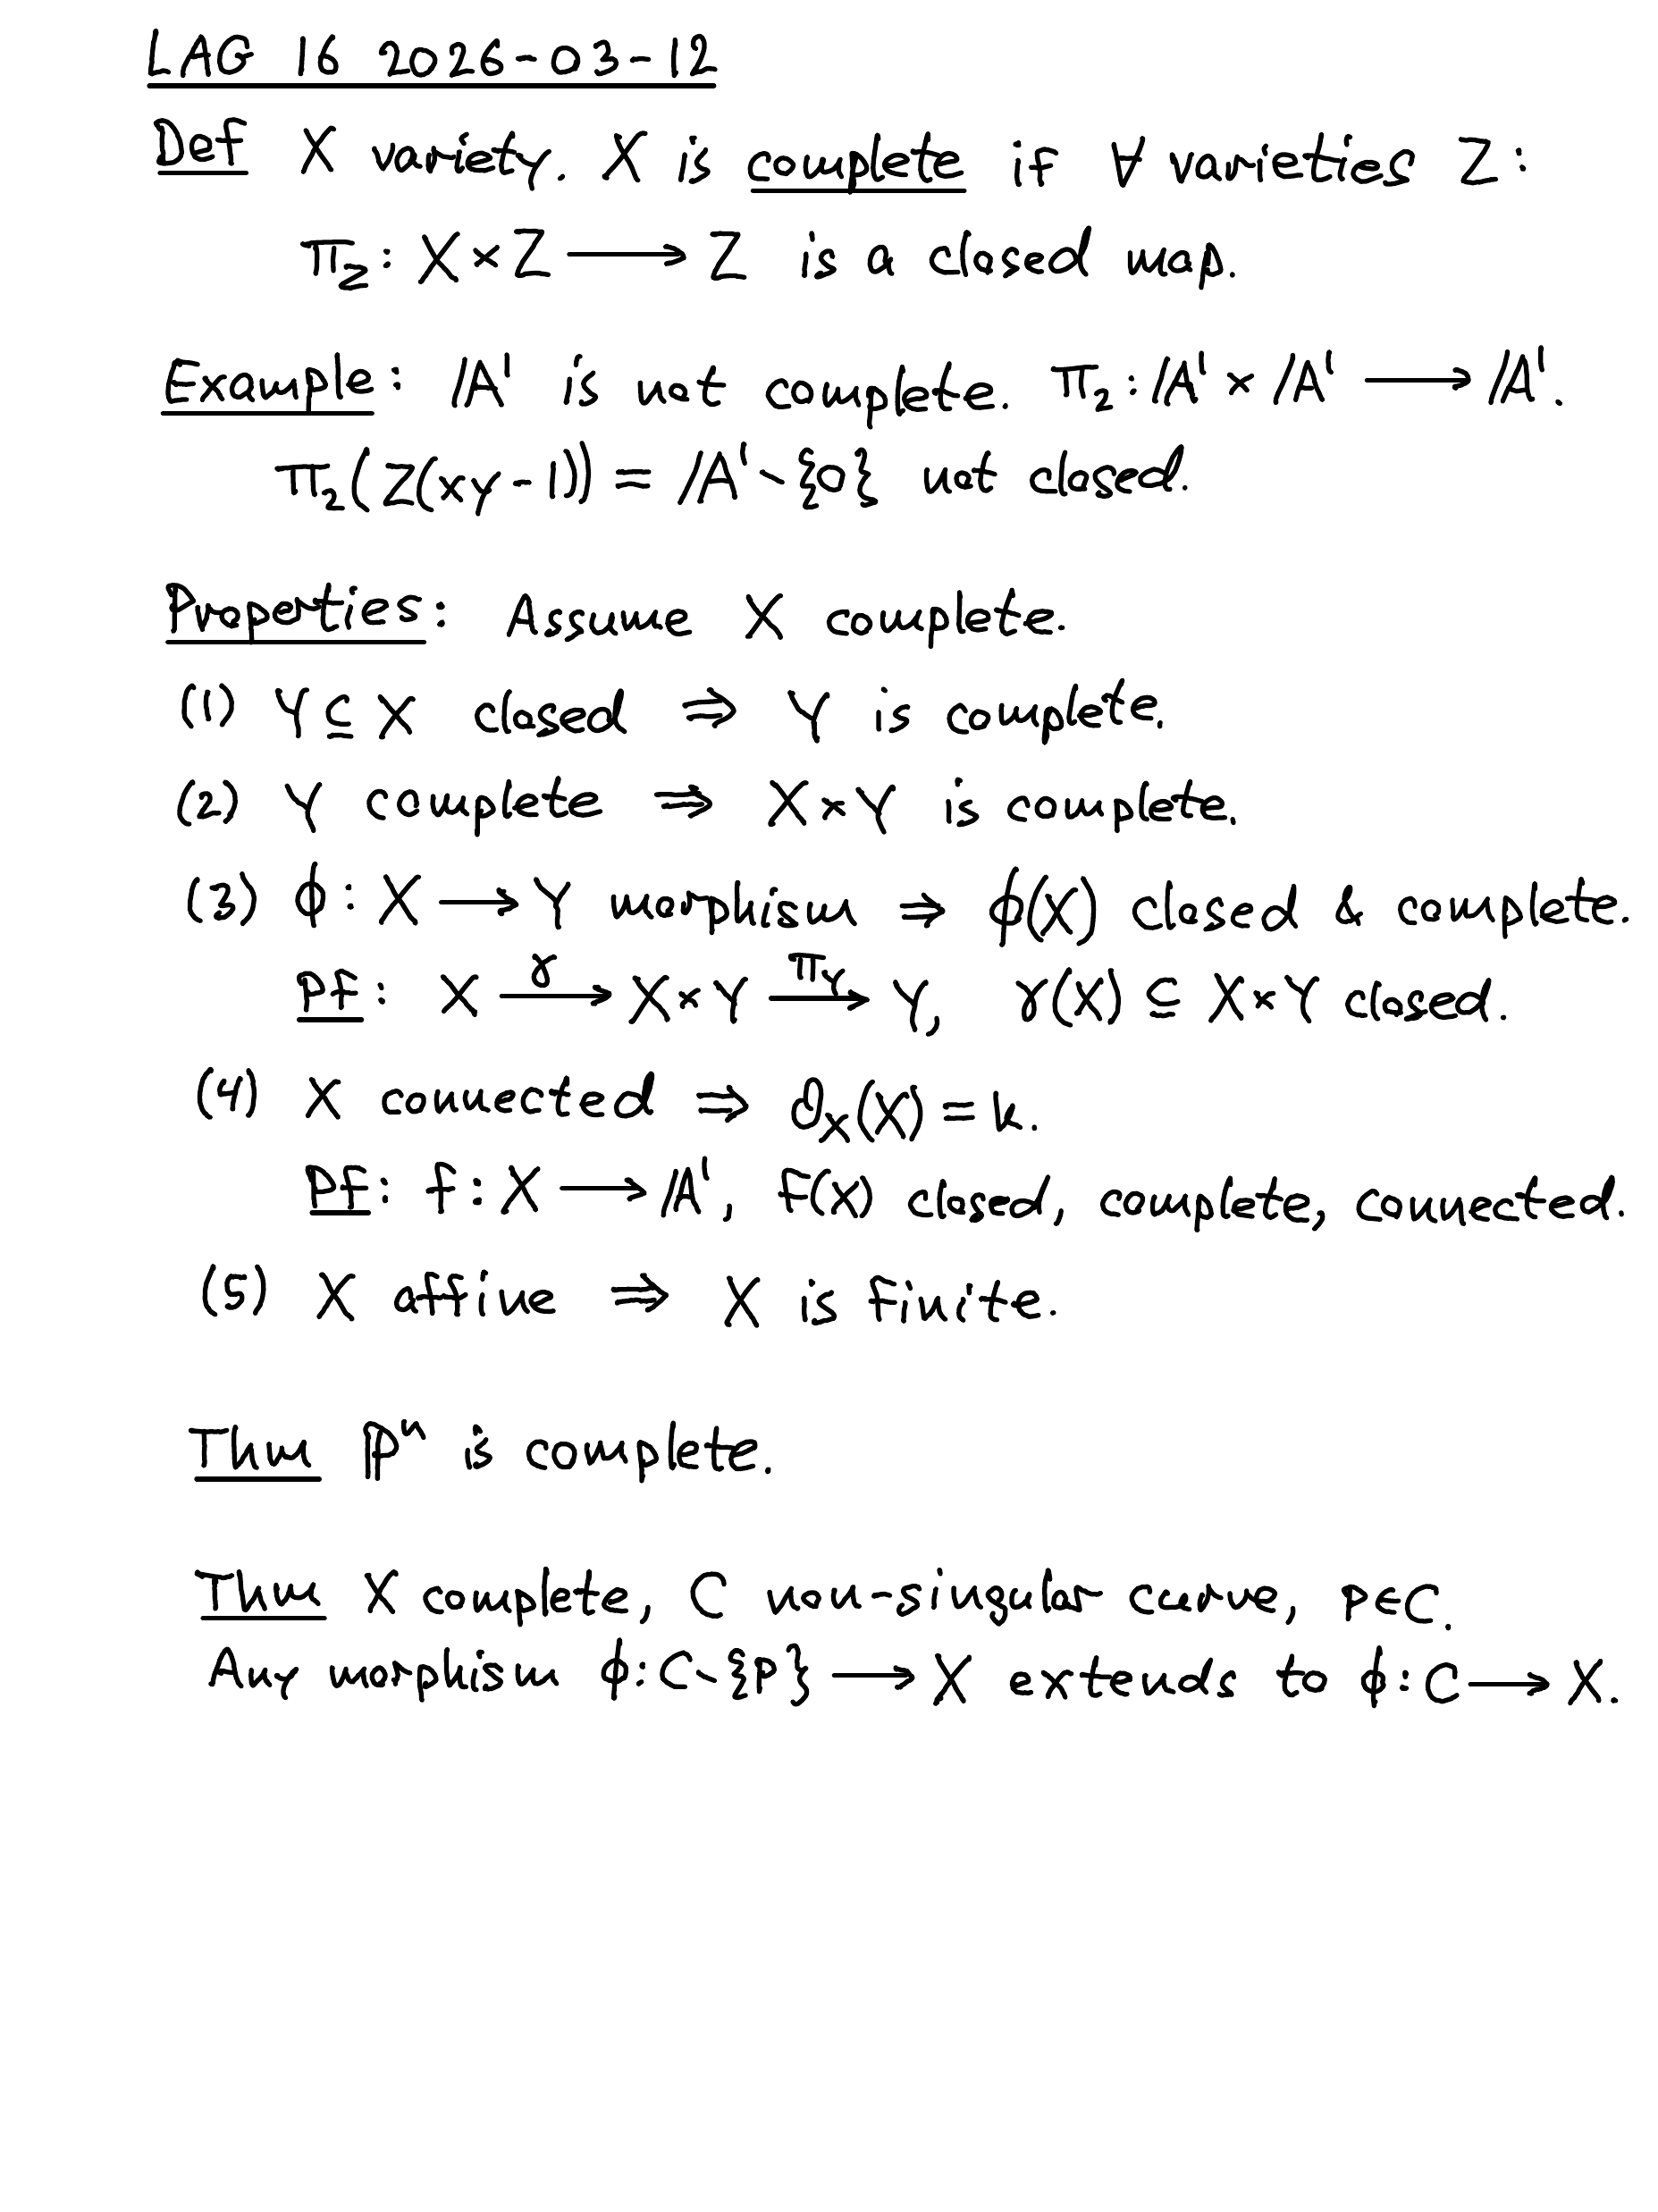 LAG 16 2026-03-12
Def X variety. X is complete if ∀ varieties Z:
π_Z: X×Z ⟶ Z is a closed map.
Example: 𝔸¹ is not complete. π₂: 𝔸¹ × 𝔸¹ ⟶ 𝔸¹.
π₂(Z(xy-1)) = 𝔸¹∖{0} not closed.
Properties: Assume X complete.
(1) Y ⊆ X closed ⇒ Y is complete.
(2) Y complete ⇒ X×Y is complete.
(3) ϕ: X ⟶ Y morphism ⇒ ϕ(X) closed & complete.
Pf: X —γ→ X×Y —π_Y→ Y, γ(X) ⊆ X×Y closed.
(4) X connected ⇒ 𝒪_X(X) = k.
Pf: f: X ⟶ 𝔸¹, f(X) closed, complete, connected.
(5) X affine ⇒ X is finite.
Thm ℙⁿ is complete.
Thm X complete, C non-singular curve, P∈C.
Any morphism ϕ: C∖{P} ⟶ X extends to ϕ: C ⟶ X.